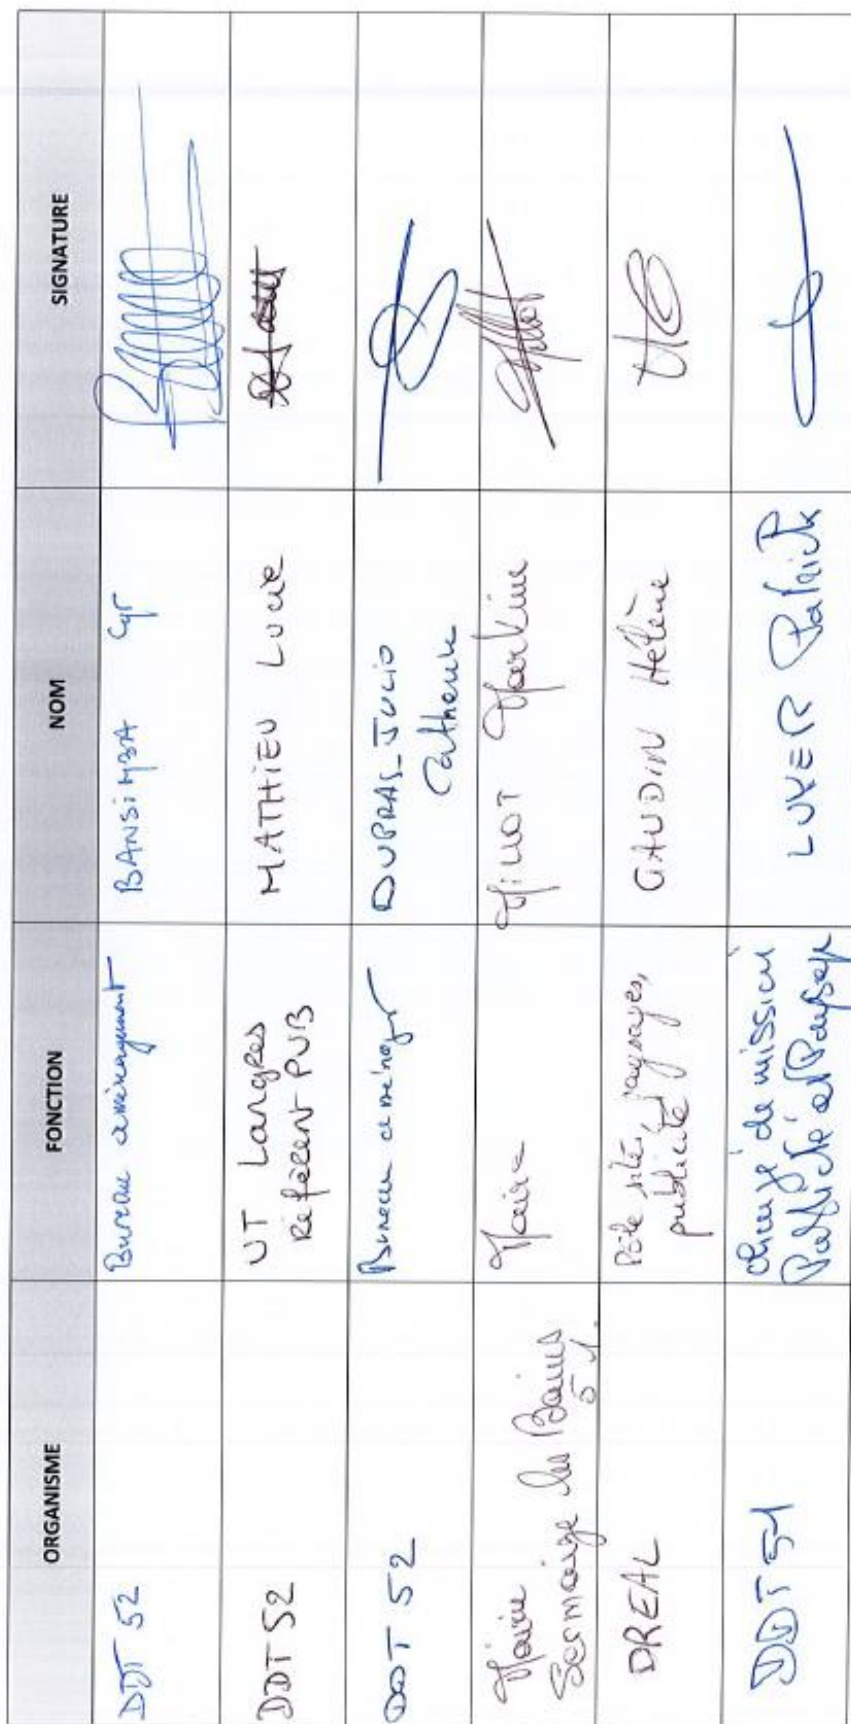 ORGANISME FONCTION NOM SIGNATURE
DDT 52 Bureau aménagement BANSIMBA Cyr
DDT 52 UT Langres
Référent PUB MATHIEU Lucie
DDT 52 Bureau aménagt DUPRAS_JULIO
Catherine
Mairie
Sermaize les Bains
51. Maire MILLOT Martine
DREAL Pôle sites, paysages,
publicité GAUDIN Hélène
DDT 51 chargé de mission
Publicité et Paysage LUKER Patrick